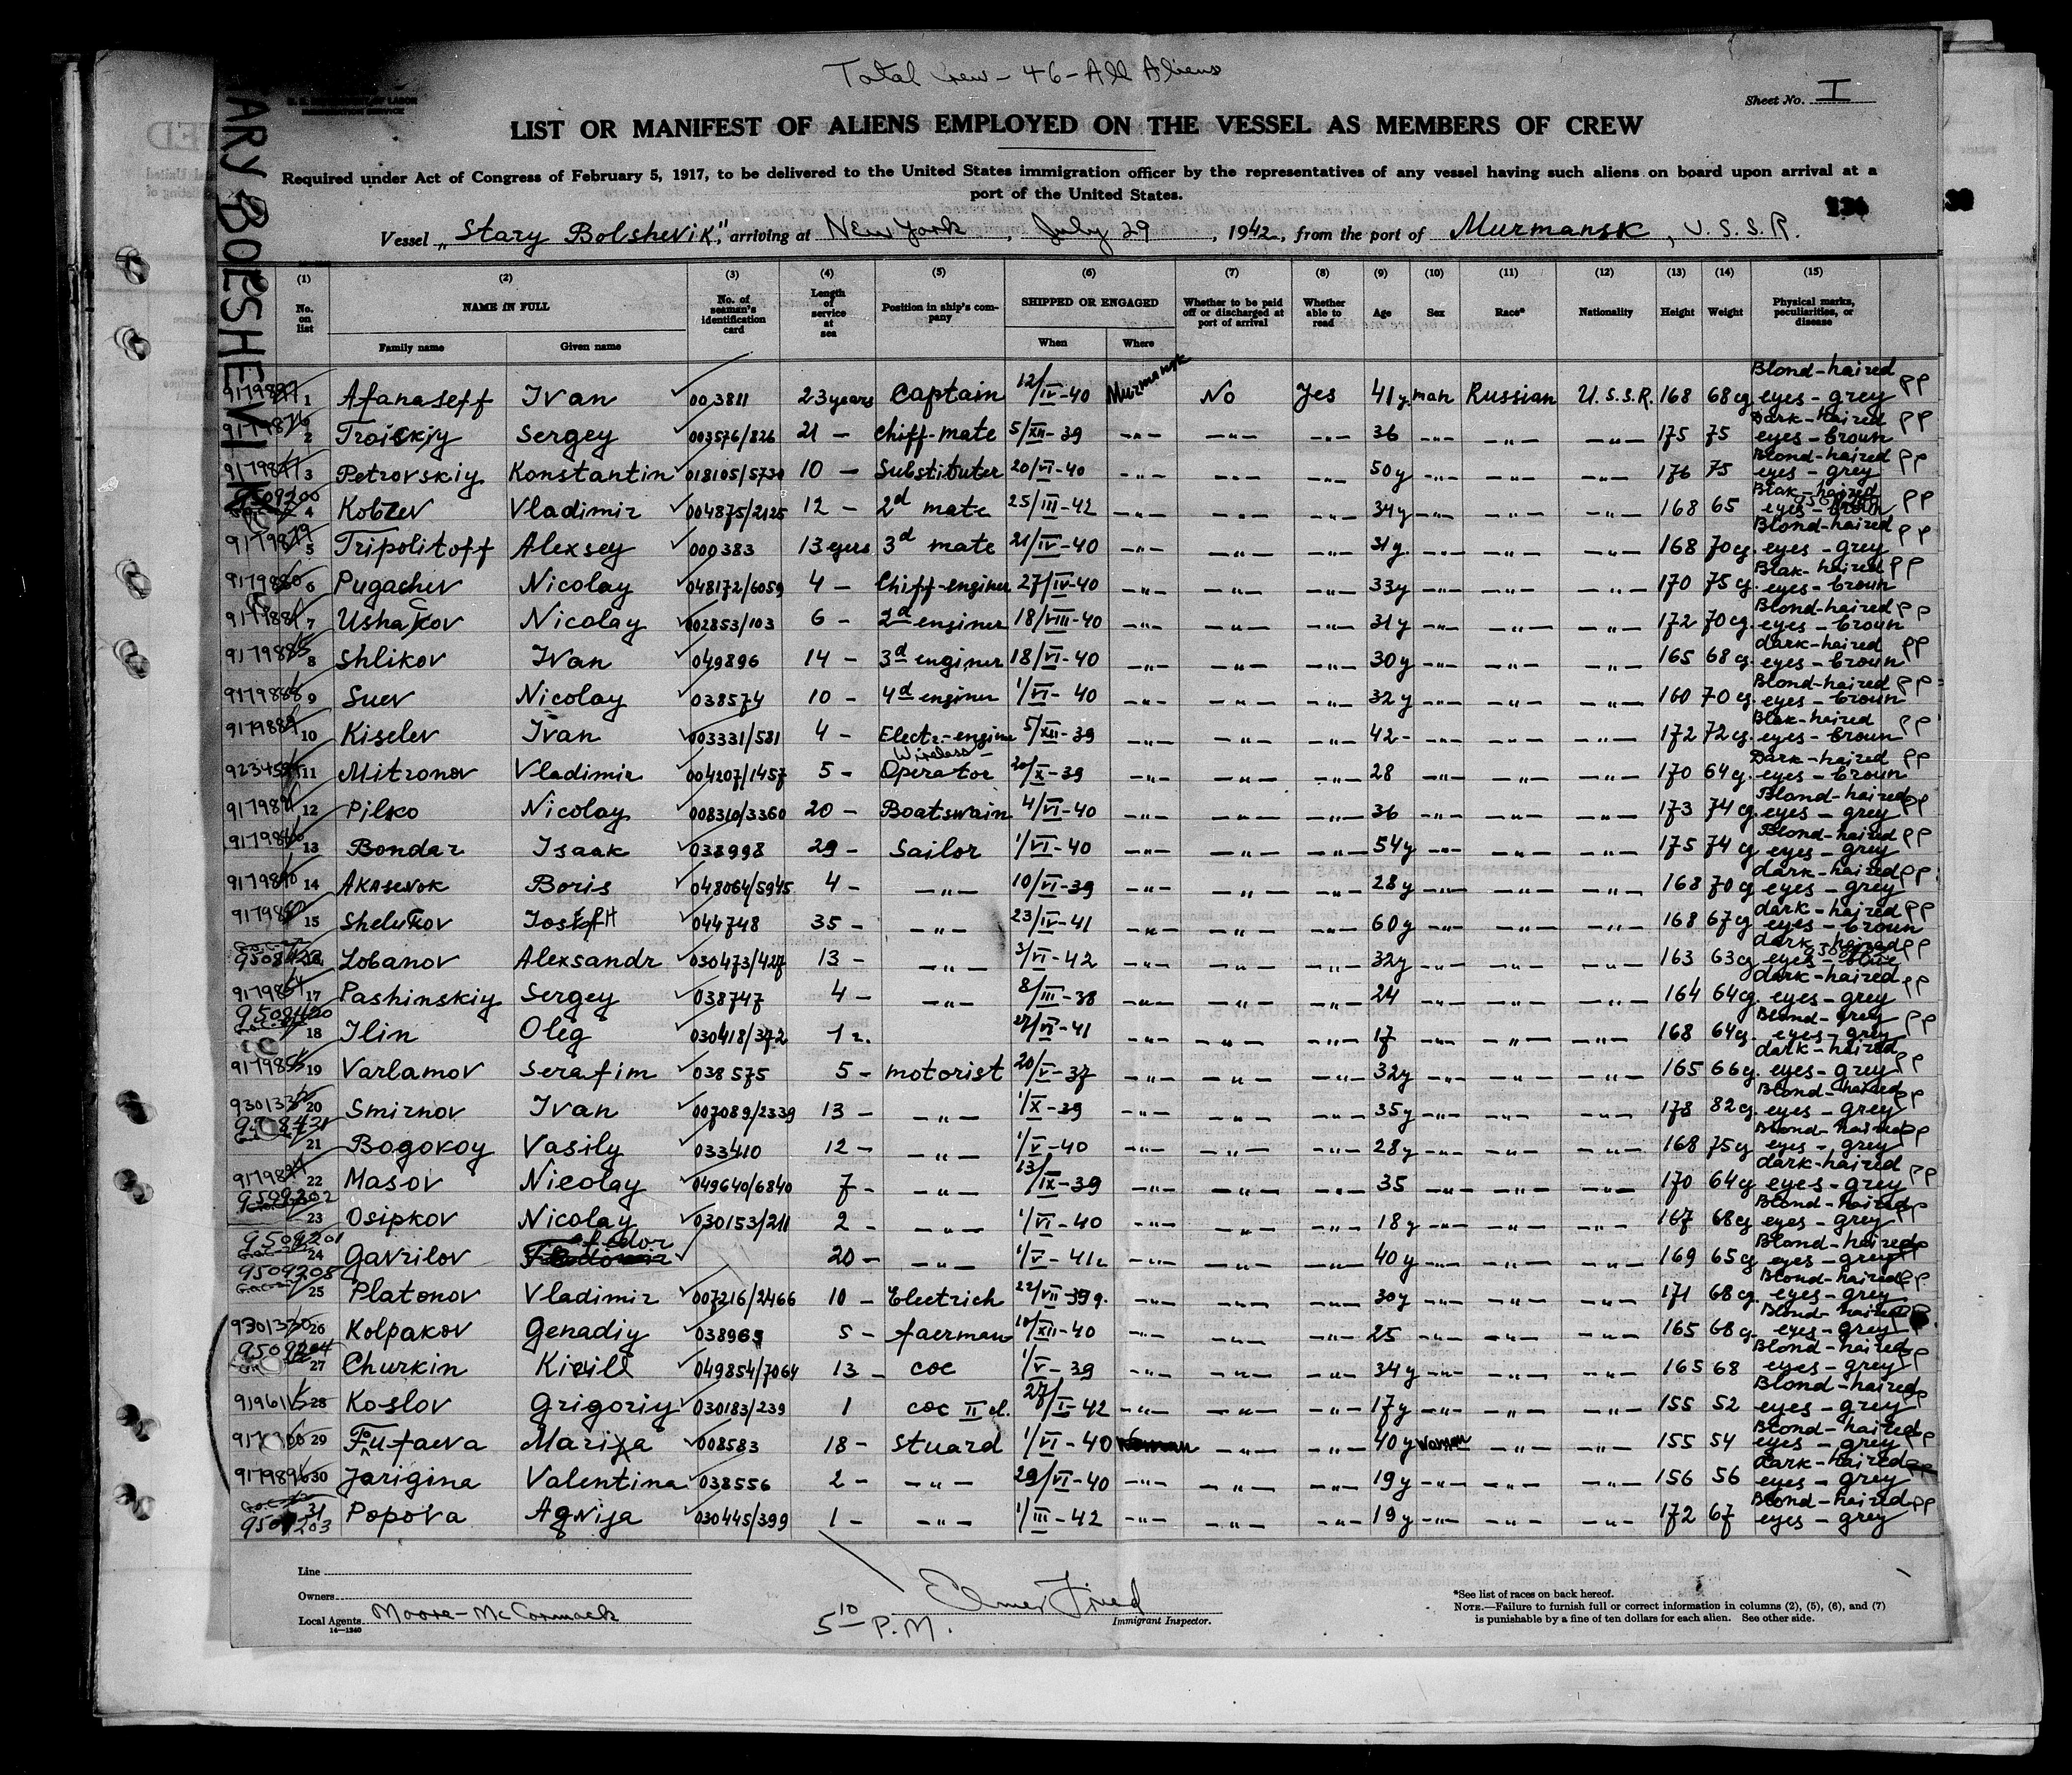 Total Crew - 46 - All Aliens
Sheet No. I
LIST OR MANIFEST OF ALIENS EMPLOYED ON THE VESSEL AS MEMBERS OF CREW
Required under Act of Congress of February 5, 1917, to be delivered to the United States immigration officer by the representatives of any vessel having such aliens on board upon arrival at a
port of the United States.
Vessel „Stary Bolshevik", arriving at New York, July 29, 1942, from the port of Murmansk, U.S.S.R.
(1) (2) (3) (4) (5) (6) (7) (8) (9) (10) (11) (12) (13) (14) (15)
No. on list NAME IN FULL Family name Given name No. of seaman's identification card Length of service at sea Position in ship's company SHIPPED OR ENGAGED When Where Whether to be paid off or discharged at port of arrival Whether able to read Age Sex Race* Nationality Height Weight Physical marks, peculiarities, or disease
1 Afanaseff Ivan 003811 23 years Captain 12/IV-40 Murmansk No Yes 41 y. man Russian U.S.S.R. 168 68 cg Blond-haired eyes-grey PP
2 Troickiy Sergey 003576/826 21 - Chiff-mate 5/XII-39 -"- -"- -"- 36 -"- -"- -"- 175 75 Dark-haired eyes-broun PP
3 Petrovskiy Konstantin 018105/5730 10 - Substituter 20/VI-40 -"- -"- -"- 50y -"- -"- -"- 176 75 Blond-haired eyes-grey PP
4 Kobzev Vladimir 004875/2125 12 - 2d mate 25/III-42 -"- -"- -"- 34y -"- -"- -"- 168 65 Blak-haired eyes-broun PP
5 Tripolitoff Alexsey 000383 13 yers 3d mate 21/IV-40 -"- -"- -"- 31y. -"- -"- -"- 168 70 cg. Blond-haired eyes-grey PP
6 Pugachev Nicolay 048172/6059 4 - Chiff-enginer 27/IV-40 -"- -"- -"- 33y -"- -"- -"- 170 75 cg. Blak-haired eyes-broun PP
7 Ushakov Nicolay 002853/103 6 - 2d enginer 18/VIII-40 -"- -"- -"- 31y -"- -"- -"- 172 70 cg. Blond-haired eyes-broun PP
8 Shlikov Ivan 049896 14 - 3d enginer 18/VI-40 -"- -"- -"- 30y -"- -"- -"- 165 68 cg. dark-haired eyes-broun PP
9 Suev Nicolay 038574 10 - 4d enginer 1/VI-40 -"- -"- -"- 32y -"- -"- -"- 160 70 cg. Blond-haired eyes-broun PP
10 Kiselev Ivan 003331/581 4 - Electr.-engine 5/XII-39 -"- -"- -"- 42- -"- -"- -"- 172 72 cg. Blak-haired eyes-broun PP
11 Mitronov Vladimir 004207/1457 5 - Wireless- Operator 20/X-39 -"- -"- -"- 28 -"- -"- -"- 170 64 cg. Dark-haired eyes-broun PP
12 Pilko Nicolay 008310/3360 20 - Boatswain 4/VI-40 -"- -"- -"- 36 -"- -"- -"- 173 74 cg. Blond-haired eyes-grey PP
13 Bondar Isaak 038998 29 - Sailor 1/VI-40 -"- -"- -"- 54y -"- -"- -"- 175 74 cg Blond-haired eyes-grey PP
14 Boris 048064/5945 4 - -"- 10/VI-39 -"- -"- -"- 28y -"- -"- -"- 168 70 cg dark-haired eyes-grey PP
15 Iosef 044748 35 - -"- 23/IV-41 -"- -"- -"- 60y -"- -"- -"- 168 67 cg dark-haired eyes-broun PP
Lobanov Alexsandr 030473/427 13 - -"- 3/VI-42 -"- -"- -"- 32y -"- -"- -"- 163 63 cg dark-haired PP
17 Pashinskiy Sergey 038747 4 - -"- 8/III-38 -"- -"- -"- 24 -"- -"- -"- 164 64 cg. dark-haired eyes-grey PP
18 Ilin Oleg 030418/372 1 -"- -"- -"- -"- 17 -"- -"- -"- 168 64 cg. Blond-grey eyes-grey PP
19 Varlamov Serafim 038575 5 - motorist 20/V-37 -"- -"- -"- 32y -"- -"- -"- 165 66 cg. dark-haired eyes-grey PP
20 Smirnov Ivan 007089/2339 13 - -"- 1/X-39 -"- -"- -"- 35y -"- -"- -"- 178 82 cg. Blond-haired eyes-grey PP
21 Bogokoy Vasily 033410 12 - -"- 1/V-40 -"- -"- -"- 28y -"- -"- -"- 168 75 cg Blond-haired eyes-grey PP
22 Masov Nicolay 049640/6840 7 - -"- 13/IX-39 -"- -"- -"- 35 -"- -"- -"- 170 64 cg dark-haired eyes-grey PP
23 Osipkov Nicolay 030153/211 2 - -"- 1/VI-40 -"- -"- -"- 18y -"- -"- -"- 167 68 cg Blond-haired eyes-grey PP
24 Gavrilov Fedor 20 - -"- 1/V-41 -"- -"- -"- 40y -"- -"- -"- 169 65 cg Blond-haired eyes-grey PP
25 Platonov Vladimir 007216/2466 10 - Electrich 22/VII-39 -"- -"- -"- 30y -"- -"- -"- 171 68 cg. Blond-haired eyes-grey PP
26 Kolpakov Genadiy 038965 5 - faerman 10/XII-40 -"- -"- -"- 25 -"- -"- -"- 165 68 cg. Blond-haired eyes-grey
27 Churkin Kirill 049854/7064 13 - coc 1/V-39 -"- -"- -"- 34y -"- -"- -"- 165 68 Blond-haired eyes-grey PP
28 Koslov Grigoriy 030183/239 1 coc II cl. 27/I-42 -"- -"- -"- 17y -"- -"- -"- 155 52 Blond-haired eyes-grey PP
29 Marija 008583 18 - stuard 1/VI-40 -"- -"- 40y woman -"- -"- 155 54 Blond-haired eyes-grey PP
30 Jarigina Valentina 038556 2 - -"- 29/VI-40 -"- -"- -"- 19y -"- -"- -"- 156 56 dark-haired eyes-grey
31 Popova Agnija 030445/399 1 - -"- 1/III-42 -"- -"- -"- 19y -"- -"- -"- 172 67 Blond-haired eyes-grey PP
Line
Owners
Local Agents Moore-McCormack
14—1240
5 10 P.M.
Elmer Fried
Immigrant Inspector.
*See list of races on back hereof.
NOTE.—Failure to furnish full or correct information in columns (2), (5), (6), and (7)
is punishable by a fine of ten dollars for each alien. See other side.